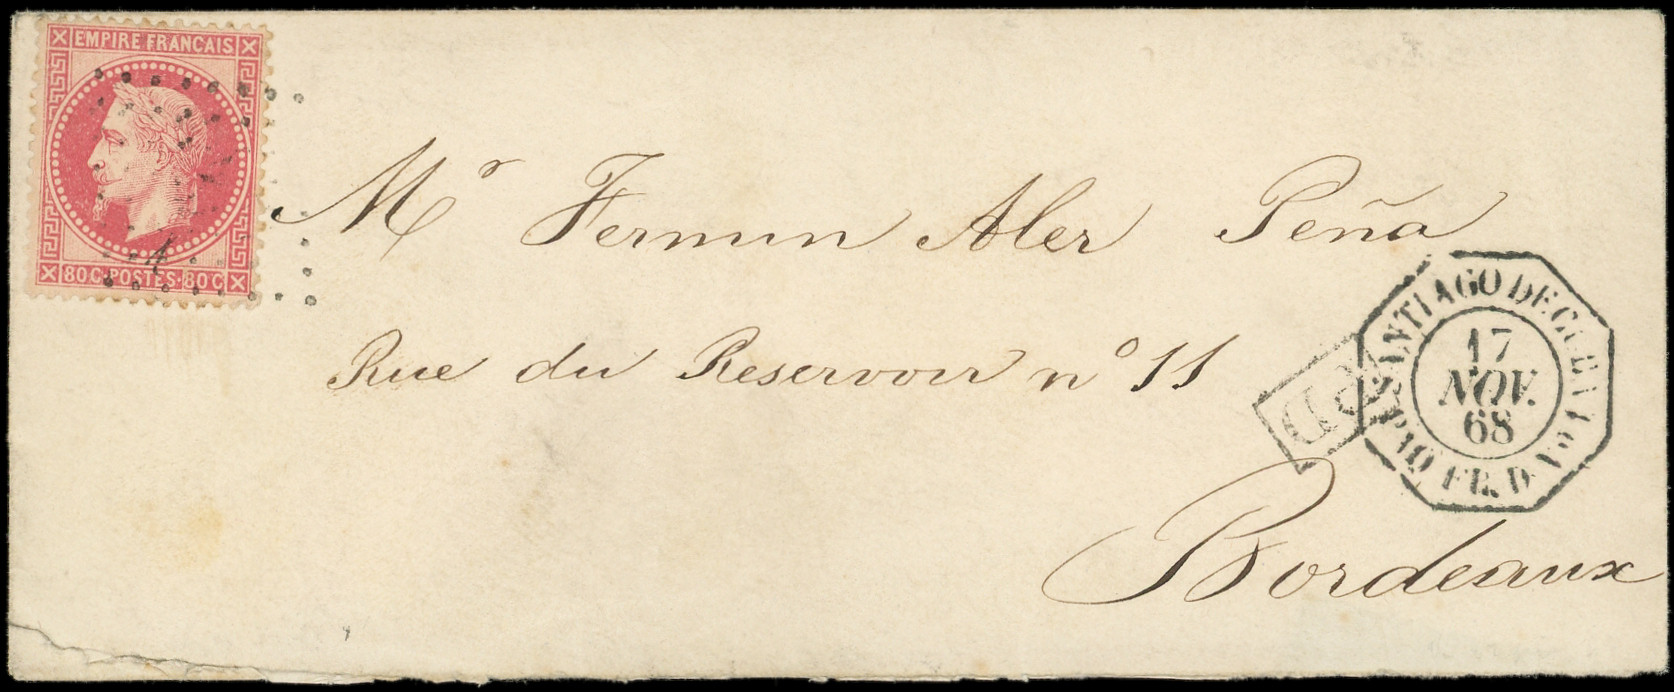 EMPIRE FRANCAIS
80C·POSTES·80C
Mr Fermin Aler Peña
Rue du Reservoir no 11
Bordeaux
PD
SANTIAGO DE CUBA
17
NOV.
68
PAQ. FR. D No 1